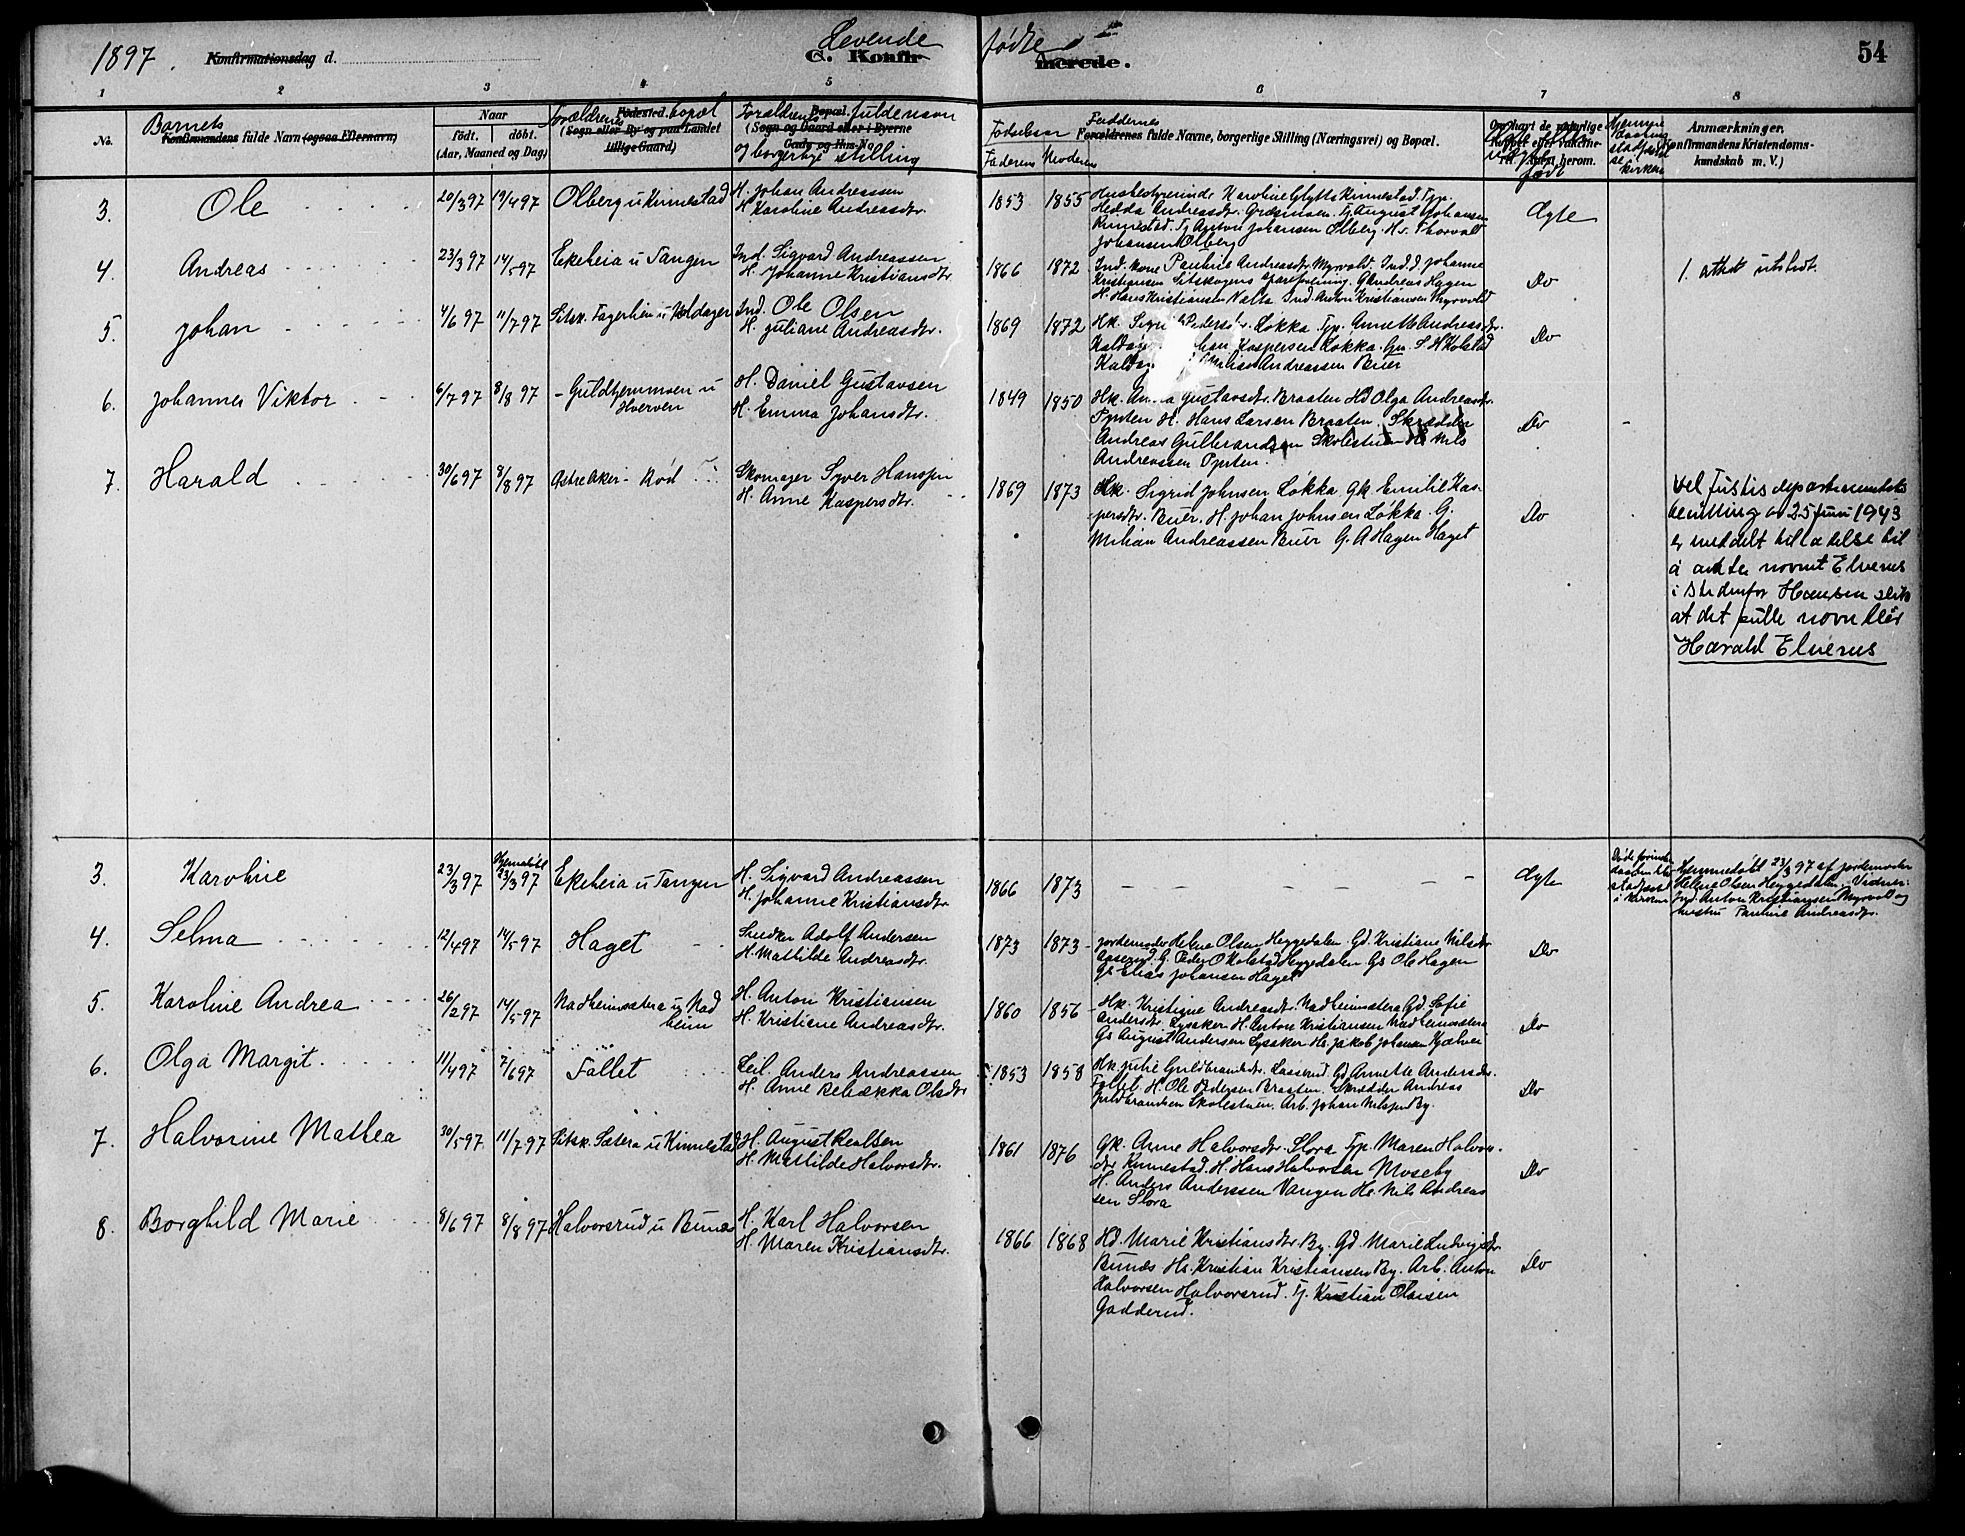 1897. Konfirmationsdag d. Levende fødte 54
C. Konfirmerede.
1 2 3 4 5 6 7 8
No. Barnets Konfirmandens fulde Navn (ogsaa Efternavn)
Naar født. døbt. (Aar, Maaned og Dag)
Forældrenes bopæl Fødested. (Sogn eller By og paa Landet tillige Gaard)
Forældrenes fulde navn og borgerlige stilling Bopæl. (Sogn og Gaard eller i Byerne Gade og Hus-No.
Fødselsaar Faderens Moderens
Faddernes Forældrenes fulde Navne, borgerlige Stilling (Næringsvei) og Bopæl.
født
Anmærkninger. (Konfirmandens Kristendoms-kundskab m. V.)
3. Ole 20/3 97 19/4 97 Olberg u Kinnestad H. Johan Andreassen
H. Karoline Andreasdtr.
1853 1855 Husbestyrerinde Karoline Glytt Kinnestad. Typ.
Hedda Andreasdtr. Tj. August Johansen
Kinnestad. Tj Anton Johansen Olberg. Hs. Thorvald
Johansen Olberg
Ægte
4. Andreas 23/3 97 14/5 97 Ekeheia u Tangen Ind. Sigvard Andreassen
H. Johanne Kristiansdtr.
1866 1872 Ind. kone Pauline Andreasdtr Myrvold. Ind. d. Johanne
Kristiansen Sitskogens Andreas Hagen
H. Hans Kristiansen Ind. Anton Kristiansen Myrvold
Do
1. attest utstedt.
5. Johan 4/6 97 11/7 97 Sitsk. Fagerlien u Koldager Ind. Ole Olsen
H. Juliane Andreasdtr.
1869 1872 Hk. Pedersdr. Løkka. Typ. Annette Andreasdtr.
Kaspersen Løkka. S H Kolstad
Andreassen Buer
Do
6. Johannes Viktor 6/7 97 8/8 97 Guldhjemmoen u
Hverven
H. Daniel Gustavsen
H. Emma Johansdtr.
1849 1850 Hk. Gustavsdtr. Braaten Hd Olga Andreasdtr.
H. Hans Larsen Braaten. Skrædder
Andreas Gulbrandsen Skolestuen Hs Nils
Andreassen
Do
7. Harald 30/6 97 8/8 97 Østre Aker - Rød Skomager Syver Hanssen
H. Anne Kaspersdtr.
1869 1873 Hk. Sigrid Johnsen Løkka. Gk Emilie Kas-
persdtr. Buer. H. Johan Johnsen Løkka. G.
Milian Andreassen Buer G. A Hagen Haget
Do
Ved Justisdepartementets
bevilling av 25 juni 1943
er meddelt tilladelse til
å anta navnet Elverus
i stedenfor Hansen slik
at det fulle navn blir
Harald Elverus
3. Karoline 23/3 97 Hjemmedøbt 23/3 97 Ekeheia u Tangen H. Sigvard Andreassen
H. Johanne Kristiansdtr
1866 1873 Ægte
Hjemmedøbt 23/3 97 af jordemoder
Helene Olsen Heggedalen. Vidner:
Ind. Anton Kristiansen Myrvold og
hustru Pauline Andreasdtr.
4. Selma 12/4 97 14/5 97 Haget Snedker Adolf Andersen
H. Mathilde Andreasdtr.
1873 1873 Jordemoder Helene Olsen Heggedalen. Gd. Kristiane Nilsdtr
Aaserud. G. Peder O Kolstad Heggedalen Gs Ole Hagen
Gs Elias Johansen Haget
Do
5. Karoline Andrea 26/2 97 14/5 97 Nadheimsætera u Nad
heim
H. Anton Kristiansen
H. Kristiane Andreasdtr.
1860 1856 Hk. Kristiane Andreasdtr. Nadheimsætera Gd. Sofie
Andersdtr. Lysaker H. Anton Kristiansen Nadheimsætera
Gs August Andersen Lysaker Hs. Jakob Johansen
Do
6. Olga Margit. 11/4 97 7/6 97 Fallet Leil. Anders Andreassen
H. Anne Rebækka Olsdtr
1853 1858 Hk. Julie Guldbrandsdtr. Gd Annette Andersdtr.
Fallet H. Ole Pedersen Braaten. Skrædder Andreas
Guldbrandsen Skolestuen. Arb. Johan Nilsen By.
Do
7. Halvorine Mathea 30/5 97 11/7 97 Sitsk. Sætera u Kinnestad H. August
H. Mathilde Halvorsdtr.
1861 1876 Gk. Anne Halvorsdtr. Slora Typ. Maren Halvors-
dtr Kinnestad. H. Hans Halvorsen Moseby
H. Anders Anderssen Vangen Hs. Nils Andreas
sen Slora
Do
8. Borghild Marie 8/6 97 8/8 97 Halvorsrud u Bunæs H. Karl Halvorsen
H. Maren Kristiansdtr.
1866 1868 Hd. Marie Kristiansdtr By. Gd. Marie Ludvigsdtr
Bunæs Hs. Kristian Kristiansen By. Arb. Anton
Halvorsen Halvorsrud. Tj. Kristian Olaisen
Gadderud.
Do